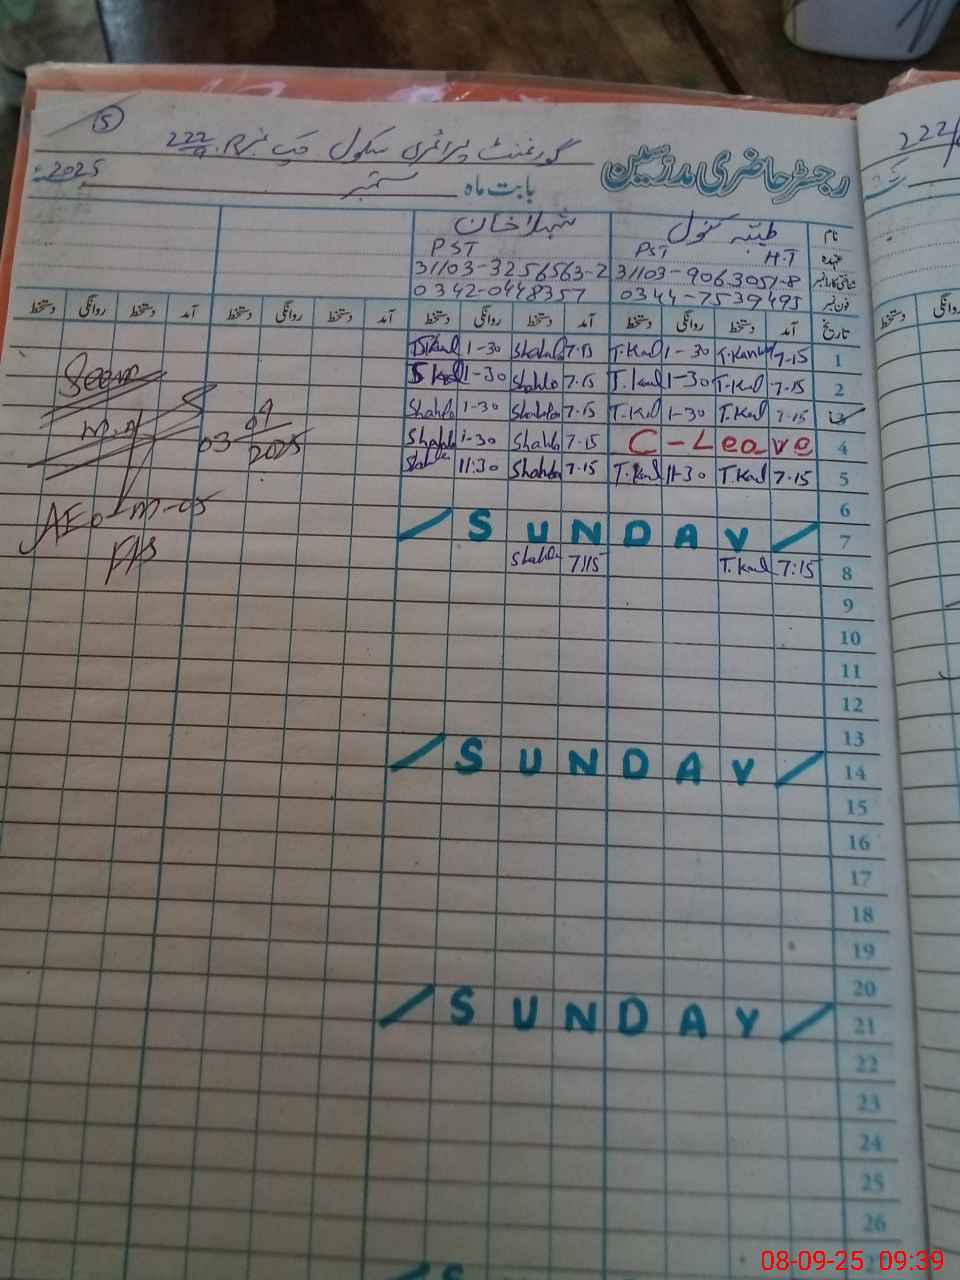 5
گورنمنٹ پرائمری سکول چک نمبر 222/9.R
222/
رجسٹر حاضری مدرسین
بابت ماہ ستمبر 2025
نام طیبہ کنول شہلا خان
عہدہ H.T PST PST
31103-9063051-8 31103-3256563-2
فون نمبر 0344-7539495 0342-0448357
تاریخ آمد دستخط روانگی دستخط آمد دستخط روانگی دستخط آمد دستخط روانگی دستخط آمد دستخط روانگی دستخط
1 7.15 T.Kanwal 1-30 T.Kanl 7.15 Shahla 1-30
2 7.15 T.Kanl 1-30 T.Kanl 7.15 Shahla 1-30
3 7.15 T.Kanl 1-30 T.Kanl 7.15 Shahla 1-30 Shahla
4 C-Leave 7.15 Shahla 1-30 Shahla
5 7.15 T.Kanl 11-30 T.Kanl 7.15 Shahla 11:30 Shahla
6
7 SUNDAY
8 7:15 T.Kanl 7:15 Shahla
9
10
11
12
13
14 SUNDAY
15
16
17
18
19
20
21 SUNDAY
22
23
24
25
26
Seen
03/09/2025
AEO
08-09-25 09:39